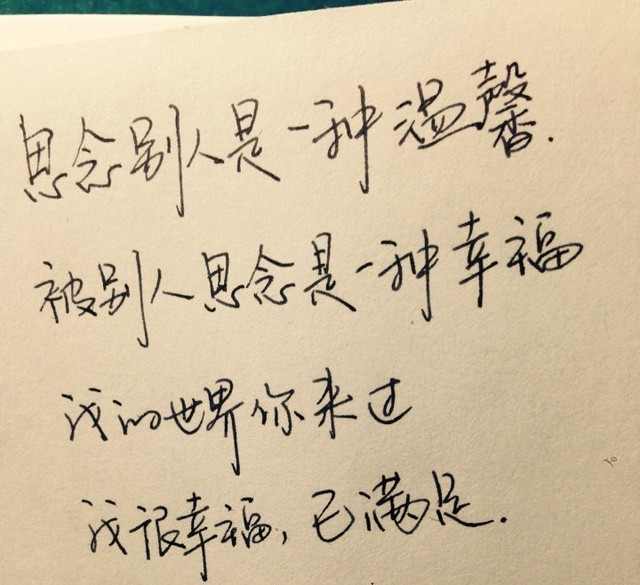 思念别人是一种温馨.
被别人思念是一种幸福
我的世界你来过
我很幸福,已满足.